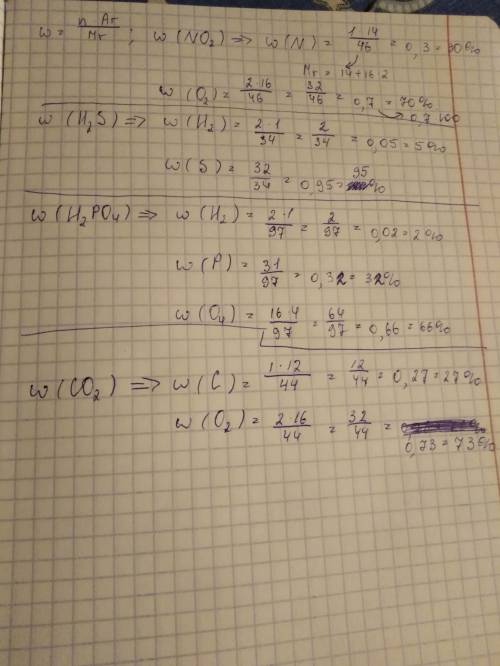 w = n·Ar/Mr ; w (NO2) => w (N) = 1·14/46 = 0,3 = 30%
Mr = 14+16·2
w (O2) = 2·16/46 = 32/46 = 0,7 = 70%
0,7·100
w (H2S) => w (H2) = 2·1/34 = 2/34 = 0,05 = 5%
w (S) = 32/34 = 0,95 = 95%
w (H2PO4) => w (H2) = 2·1/97 = 2/97 = 0,02 = 2%
w (P) = 31/97 = 0,32 = 32%
w (O4) = 16·4/97 = 64/97 = 0,66 = 66%
w (CO2) => w (C) = 1·12/44 = 12/44 = 0,27 = 27%
w (O2) = 2·16/44 = 32/44 =
0,73 = 73%